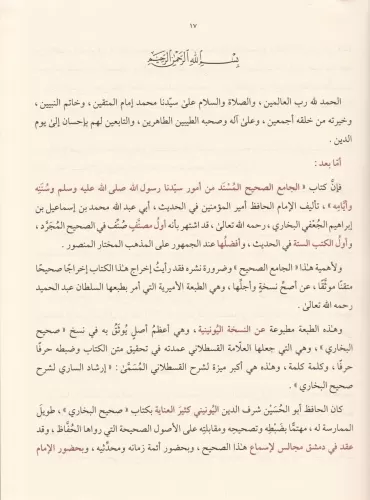 ١٧
بسم الله الرحمن الرحيم
الحمد لله رب العالمين ، والصلاة والسلام على سيّدنا محمد إمام المتقين ، وخاتم النبيين ،
وخيرته من خلقه أجمعين ، وعلى آله وصحبه الطيبين الطاهرين ، والتابعين لهم بإحسان إلى يوم
الدين .
أمّا بعد :
فإنَّ كتاب « الجامع الصحيح المُسْنَد من أمور سيّدنا رسول الله صلى الله عليه وسلم وسُنَنِه
وأيّامِه » ، تأليف الإمام الحافظ أمير المؤمنين في الحديث ، أبي عبد الله محمد بن إسماعيل بن
إبراهيم الجُعْفي البخاري ، رحمه الله تعالى ، قد اشتهر بأنه أول مصنَّفٍ صُنِّف في الصحيح المُجَرَّد ،
وأولُ الكتب الستة في الحديث ، وأفضلُها عند الجمهور على المذهب المختار المنصور .
ولأهمية هذا « الجامع الصحيح » وضرورة نشره فقد رأيتُ إخراج هذا الكتاب إخراجًا صحيحًا
متقنًا موثَّقًا ، عن أصحِّ نسخةٍ وأجلِّها ، وهي الطبعة الأميرية التي أمر بطبعها السلطان عبد الحميد
رحمه الله تعالى .
وهذه الطبعة مطبوعة عن النسخة اليُونينية ، وهي أعظمُ أصلٍ يُوثَقُ به في نسخ « صحيح
البخاري » ، وهي التي جعلها العلّامة القسطلاني عمدته في تحقيق متن الكتاب وضبطه حرفًا
حرفًا ، وكلمة كلمة ، وهذه هي أكبر ميزة لشرح القسطلاني المُسَمَّى : « إرشاد الساري لشرح
صحيح البخاري » .
كان الحافظ أبو الحُسَيْن شرف الدين اليُونيني كثيرَ العناية بكتاب « صحيح البخاري » ، طويلَ
الممارسة له ، مهتمًّا بضَبْطِه وتصحيحِه ومقابلتِه على الأصول الصحيحة التي رواها الحُفَّاظ ، وقد
عقد في دمشق مجالس لإسماع هذا الصحيح ، وبحضور أئمة زمانه ومحدِّثيه ، وبحضور الإمام